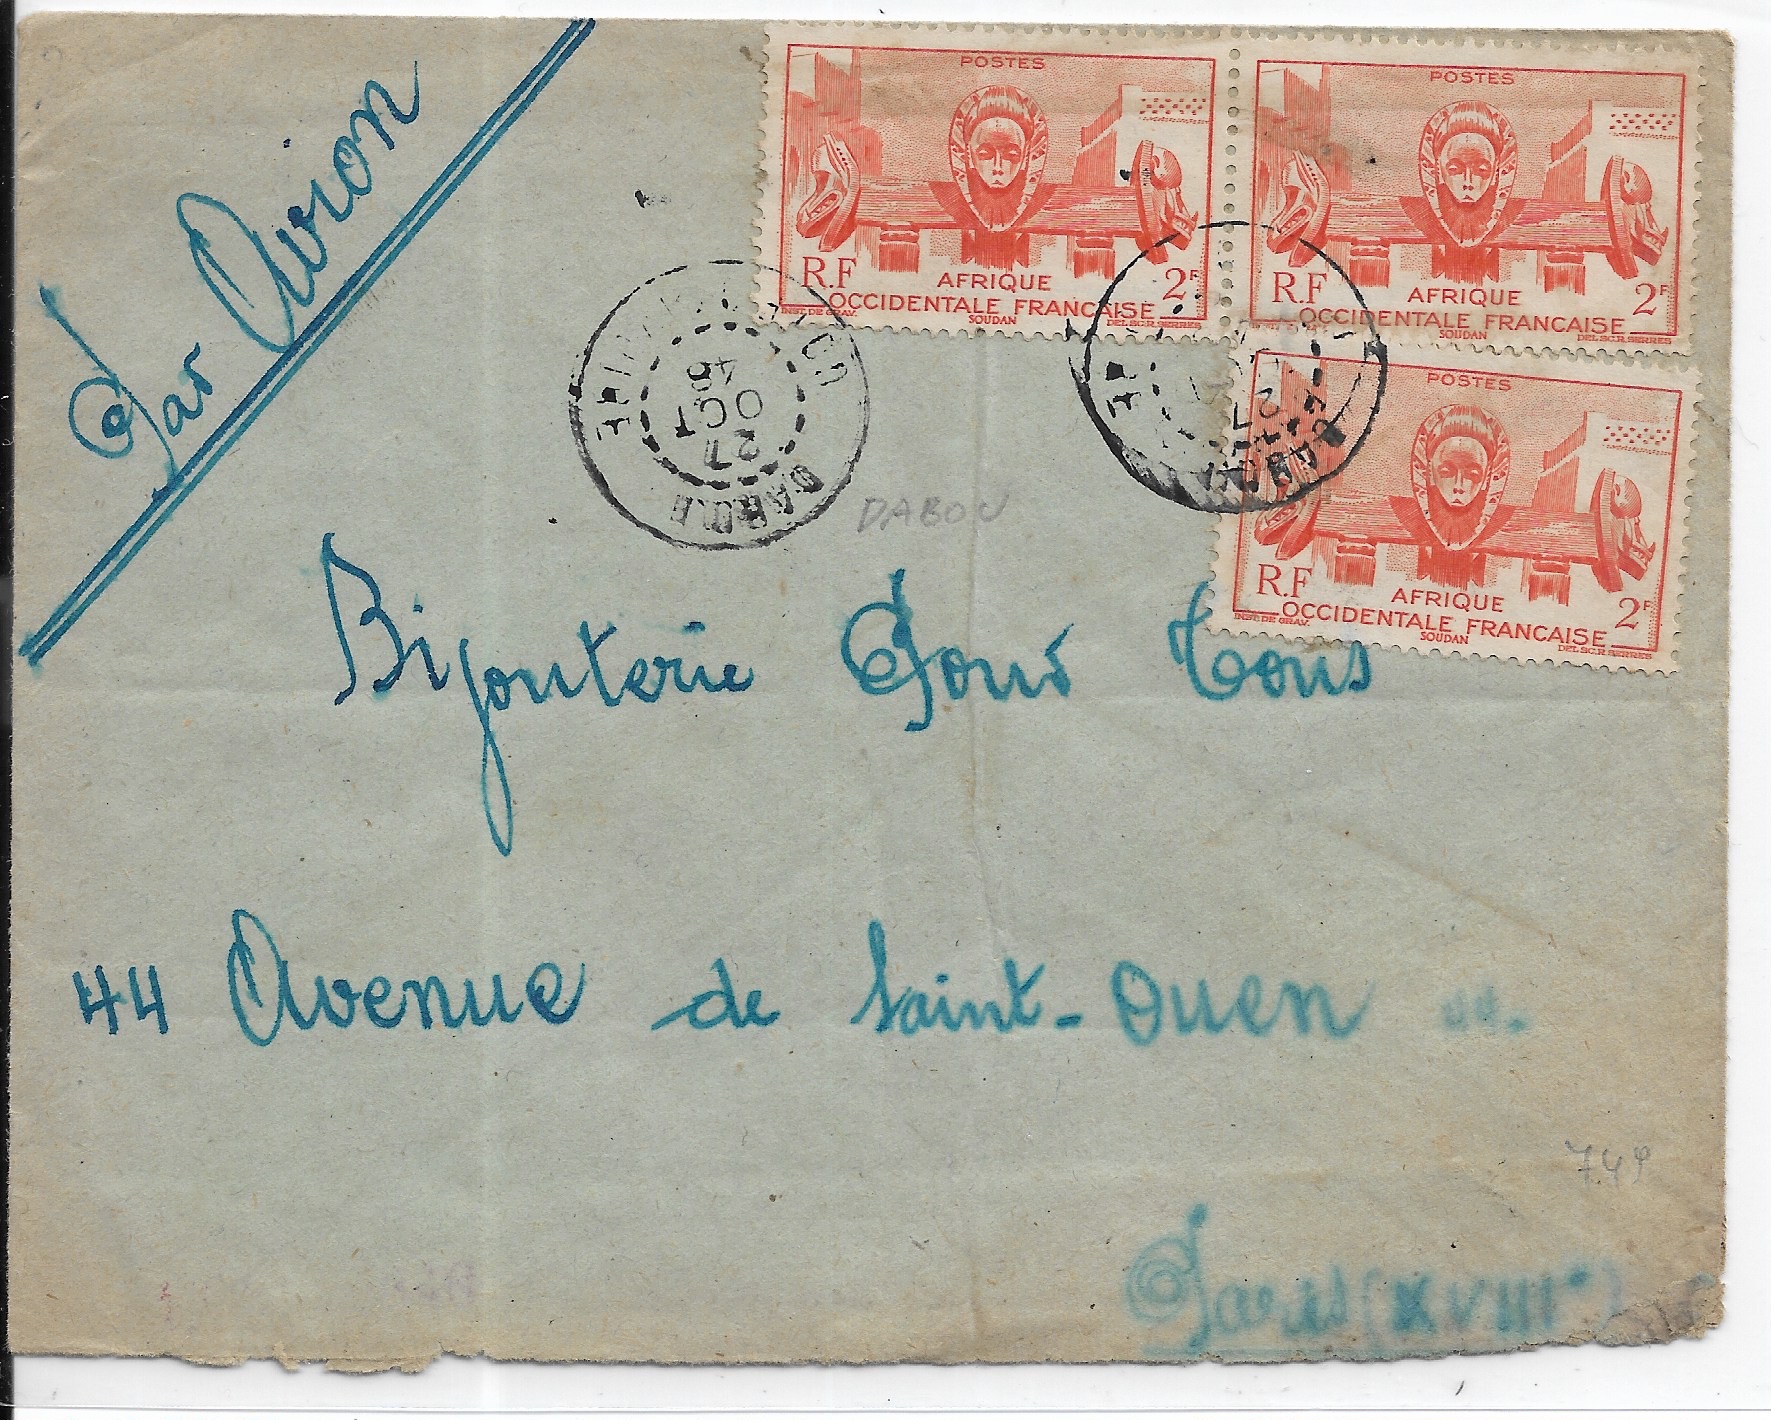 Par Avion
POSTES
R.F
AFRIQUE
2F
OCCIDENTALE FRANCAISE
INST. DE GRAV.
SOUDAN
DEL.SC.R.SERRES
POSTES
R.F
AFRIQUE
2F
OCCIDENTALE FRANCAISE
SOUDAN
DEL.SC.R.SERRES
POSTES
R.F
AFRIQUE
2F
OCCIDENTALE FRANCAISE
INST. DE GRAV.
SOUDAN
DEL.SC.R.SERRES
27
OCT
27
DABOU
Bijouterie Pour Tous
44 Avenue de Saint-Ouen
Paris (XVIIIe)